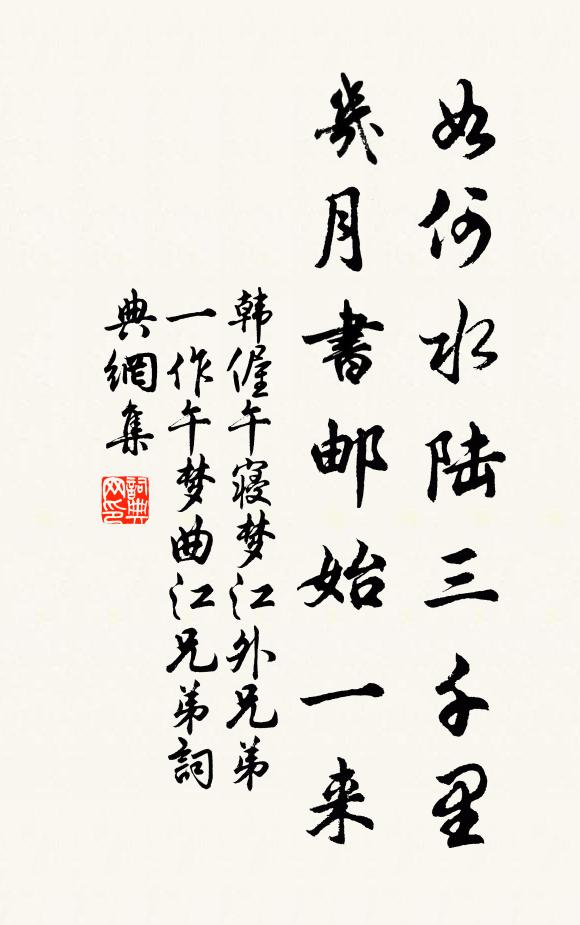 如何水陆三千里
幾月書邮始一来
韩偓午寝梦江外兄弟
一作午梦曲江兄弟詞
典網集
詞典网印